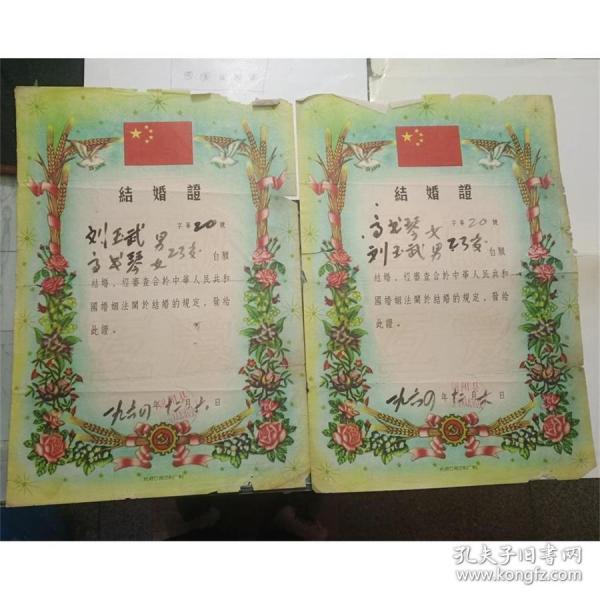 結婚證
字第20號
刘玉武 男
高戈琴 女 23岁 自願
結婚，經審查合於中華人民共和
國婚姻法關於結婚的規定，發給
此證。
一九六〇年十二月六日
結婚證
字第20號
高戈琴 女
刘玉武 男 23岁 自願
結婚，經審查合於中華人民共和
國婚姻法關於結婚的規定，發給
此證。
一九六〇年十二月六日
孔夫子旧书网
www.kongfz.com